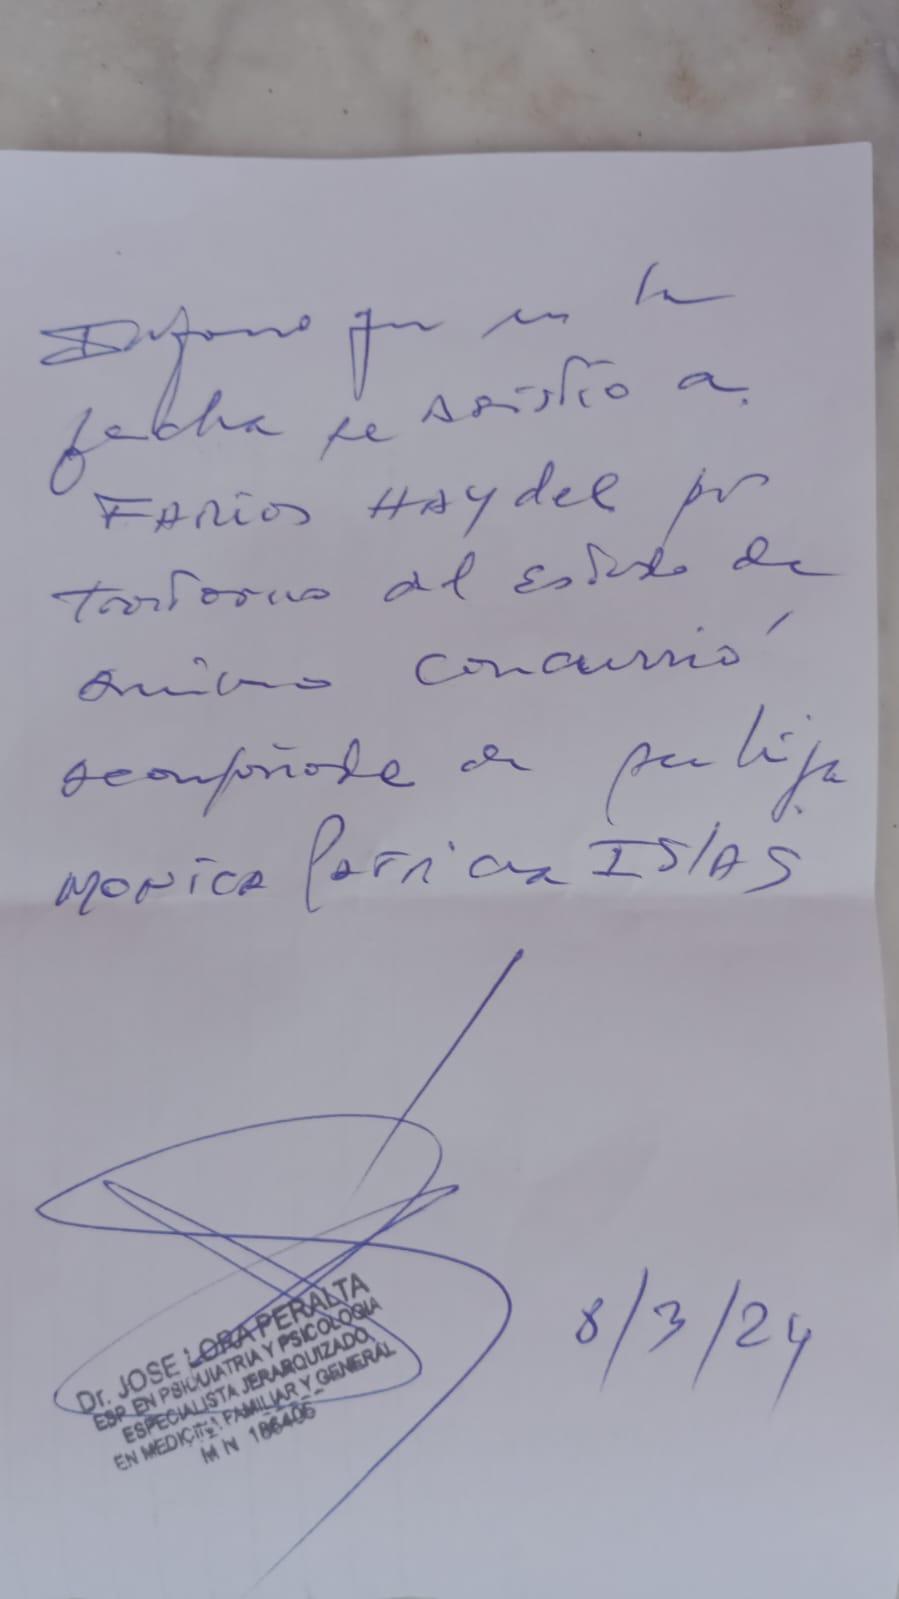 Informo que en la
fecha se asistio a
FARIOS HAYdeE por
trastorno del estado de
animo concurrió
acompañada de su hija
MONICA PATRICIA ISLAS
Dr. JOSE LORA PERALTA
ESP. EN PSIQUIATRIA Y PSICOLOGIA
ESPECIALISTA JERARQUIZADO
EN MEDICINA FAMILIAR Y GENERAL
MN 186406
8/3/24